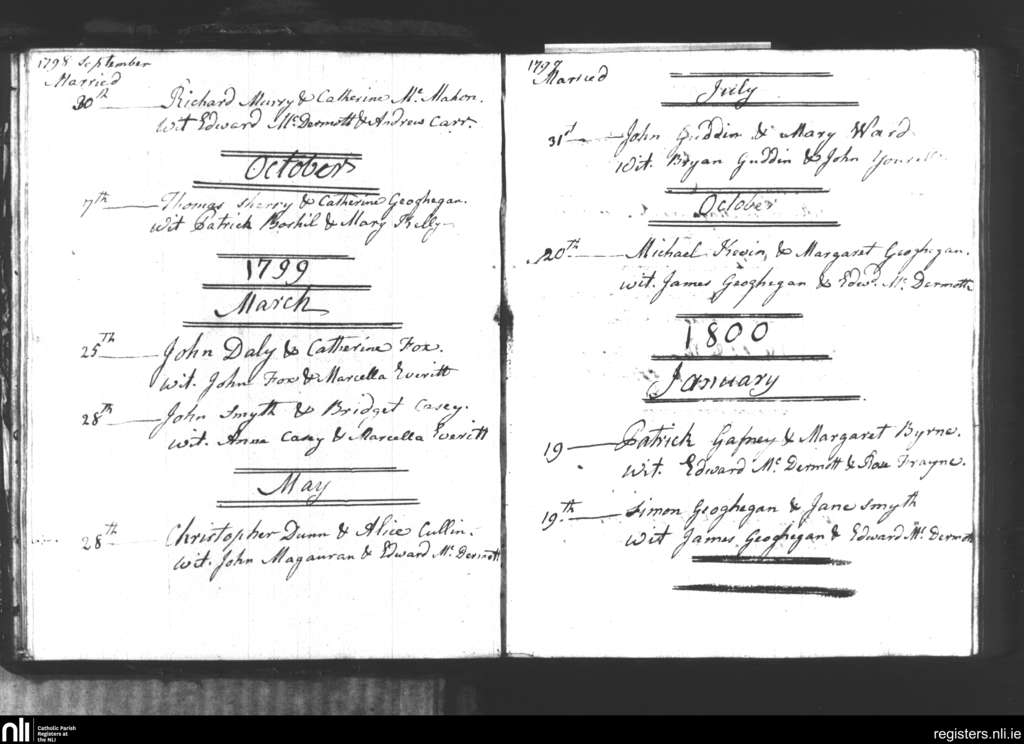 1798 September
Married
30th Richard Murry & Catherine Mc Mahon.
Wit Edward Mc Dermott & Andrew Carr.
October
7th Thomas Sherry & Catherine Geoghegan.
Wit Patrick Boshil & Mary Kelly
1799
March
25th John Daly & Catherine Fox.
Wit. John Fox & Marcella Everitt
28th John Smyth & Bridget Casey.
Wit. Anne Casey & Marcella Everitt
May
28th Christopher Dunn & Alice Cullin.
Wit. John Magauran & Edward Mc Dermott
Married
July
31st John Guddin & Mary Ward
Wit. Bryan Guddin & John
October
20th Michael Kevin & Margaret Geoghegan.
Wit. James Geoghegan & Edwd. Mc Dermott
1800
January
19 Patrick Gafney & Margaret Byrne.
Wit. Edward Mc Dermott & Rose Trayne.
19th Simon Geoghegan & Jane Smyth
Wit James Geoghegan & Edward Mc Dermott
nli Catholic Parish
Registers at
the NLI
registers.nli.ie